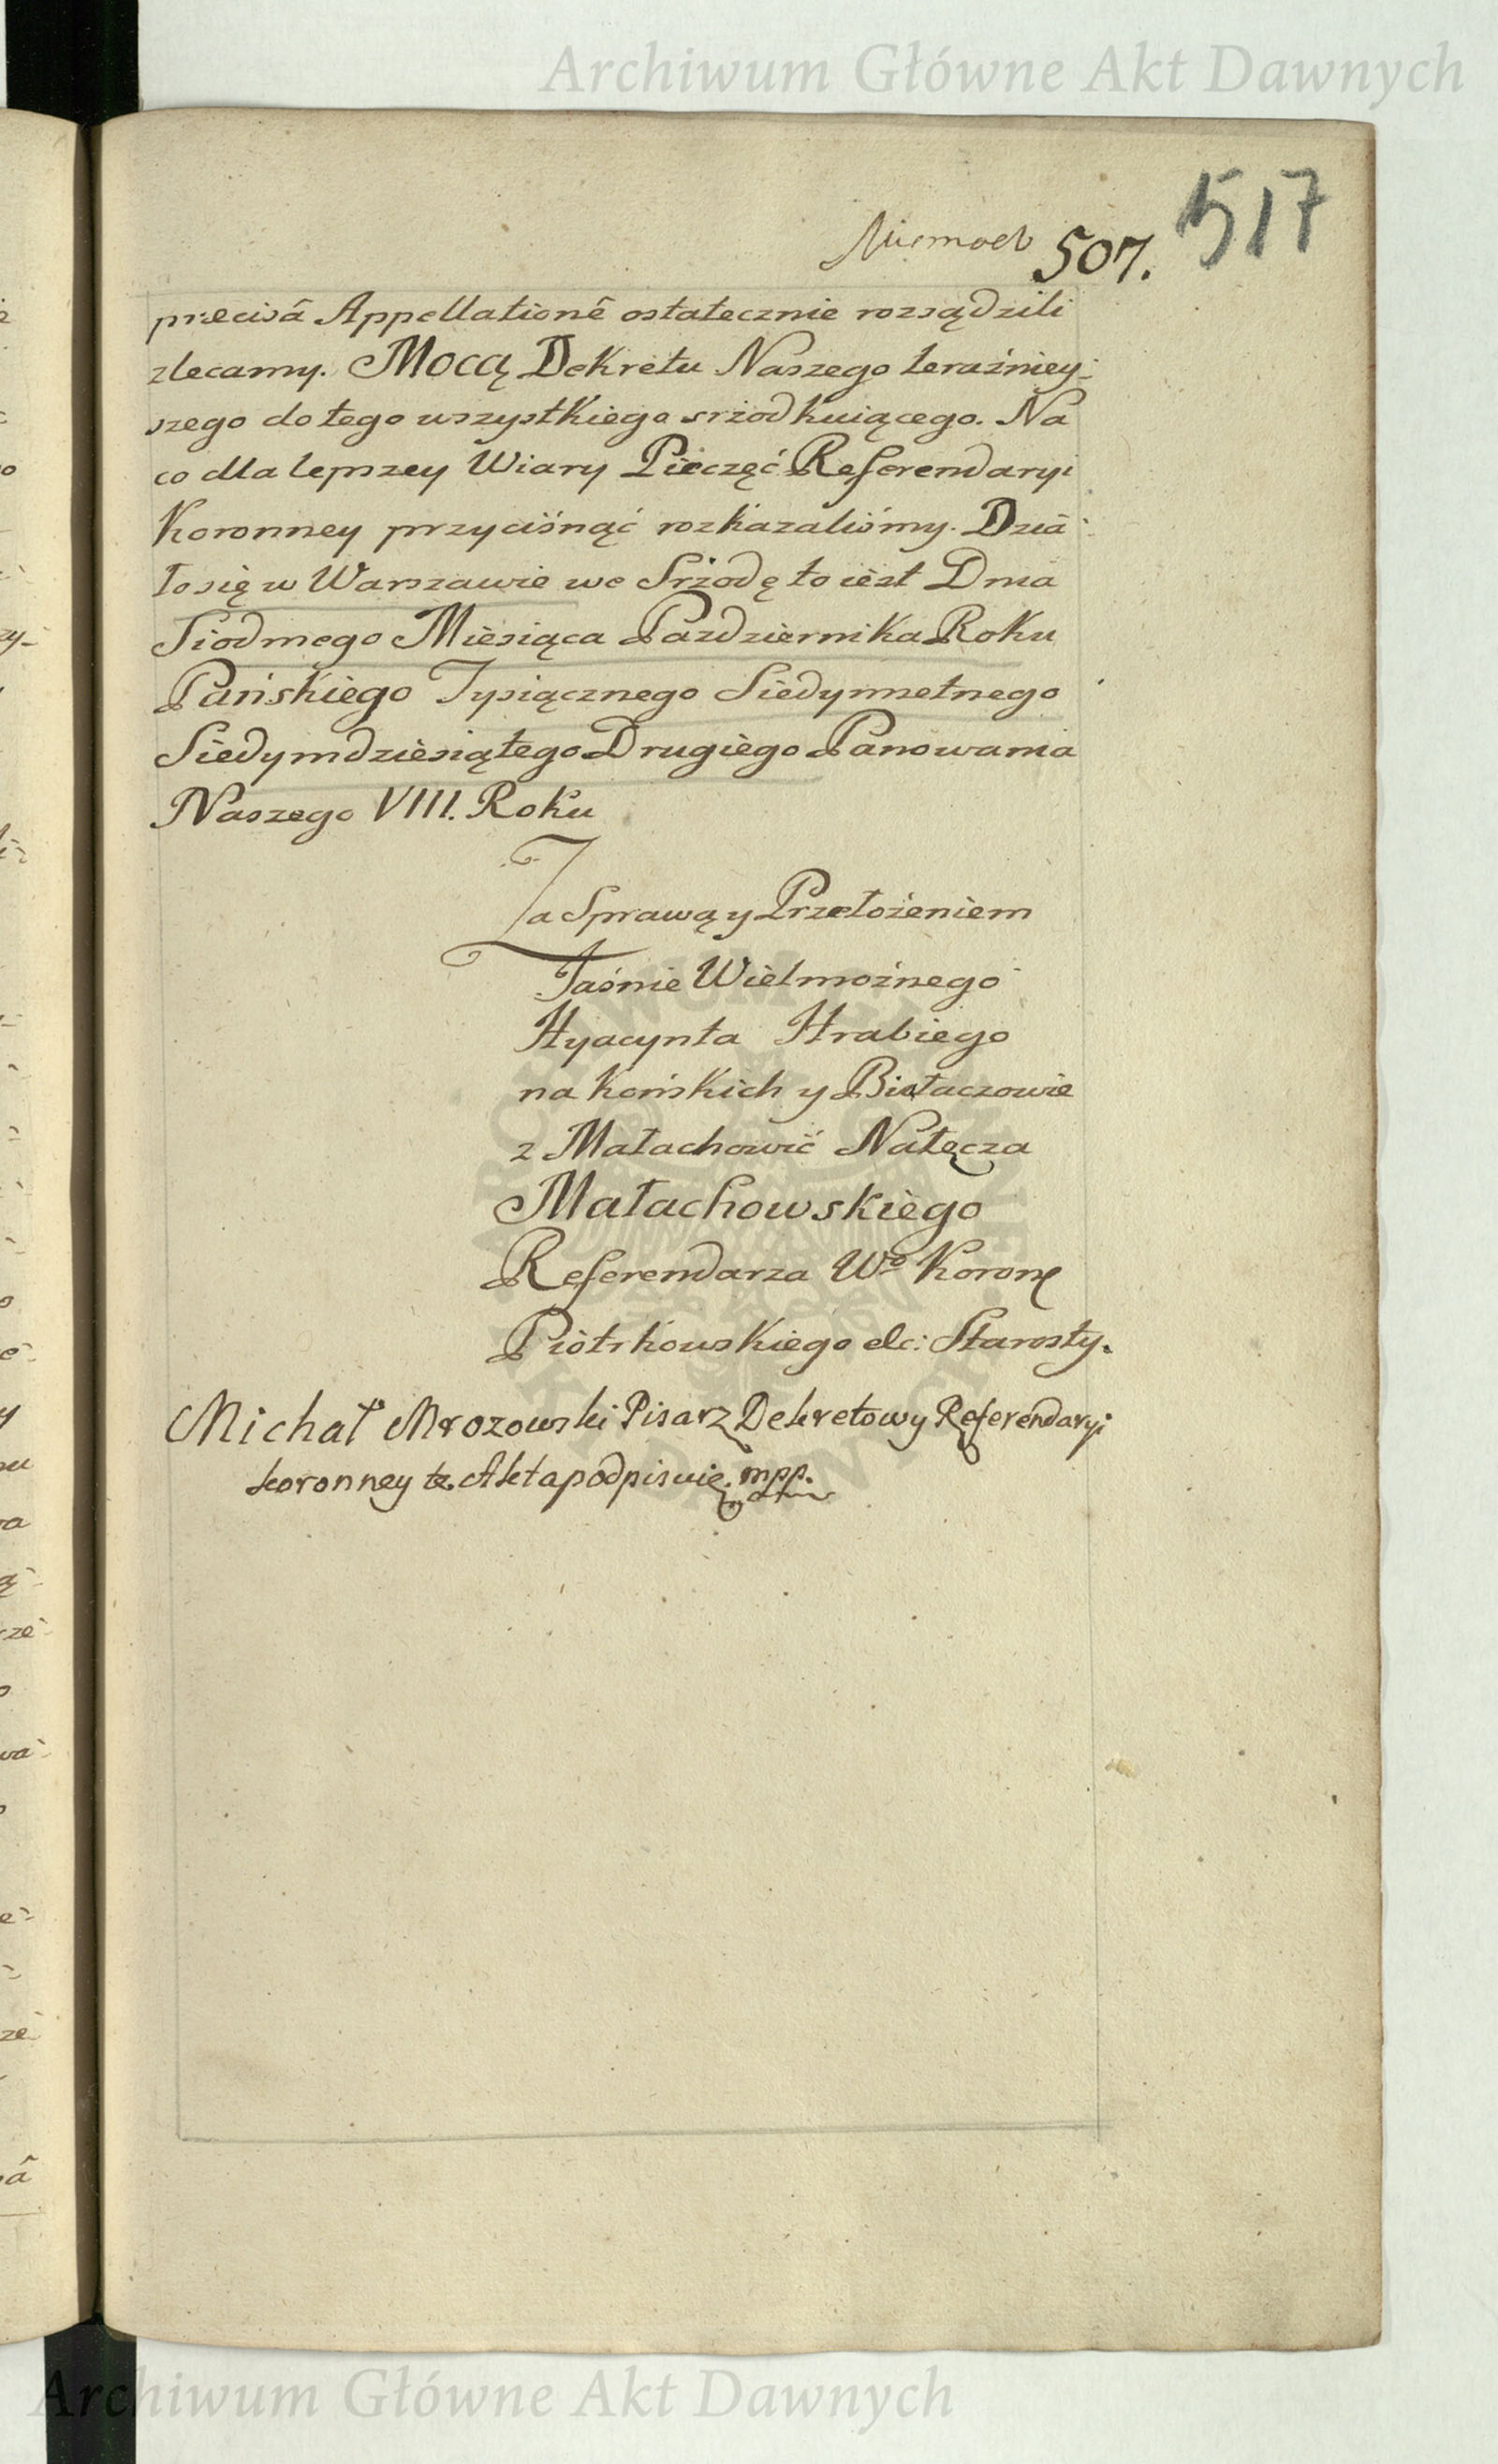 Archiwum Główne Akt Dawnych
517
507.
præcisâ Appellationê ostatecznie rozsądzili
zlecamy. Mocą Dekretu Naszego teraźniey:
szego do tego wszystkiego srzodkuiącego. Na
co dla lepszey Wiary Pieczęć Referendaryi
Koronney przycisnąć rozkazaliśmy. Dzia:
ło się w Warszawie we Srzodę to iest Dnia
Siodmego Miesiąca Pazdziernika Roku
Pańskiego Tysiącznego Siedymsetnego
Siedymdziesiątego Drugiego Panowania
Naszego VIII. Roku
Za Sprawą y Przełożeniem
Jaśnie Wielmożnego
Hyacynta Hrabiego
na Końskich y Białaczowie
z Małachowić Nałęcza
Małachowskiego
Referendarza Wo Koronę
Piotrkowskiego etc: Starosty.
Michał Mrozowski Pisarz Dekretowy Referendaryi
koronney te Akta podpisuię. mpp.
Archiwum Główne Akt Dawnych